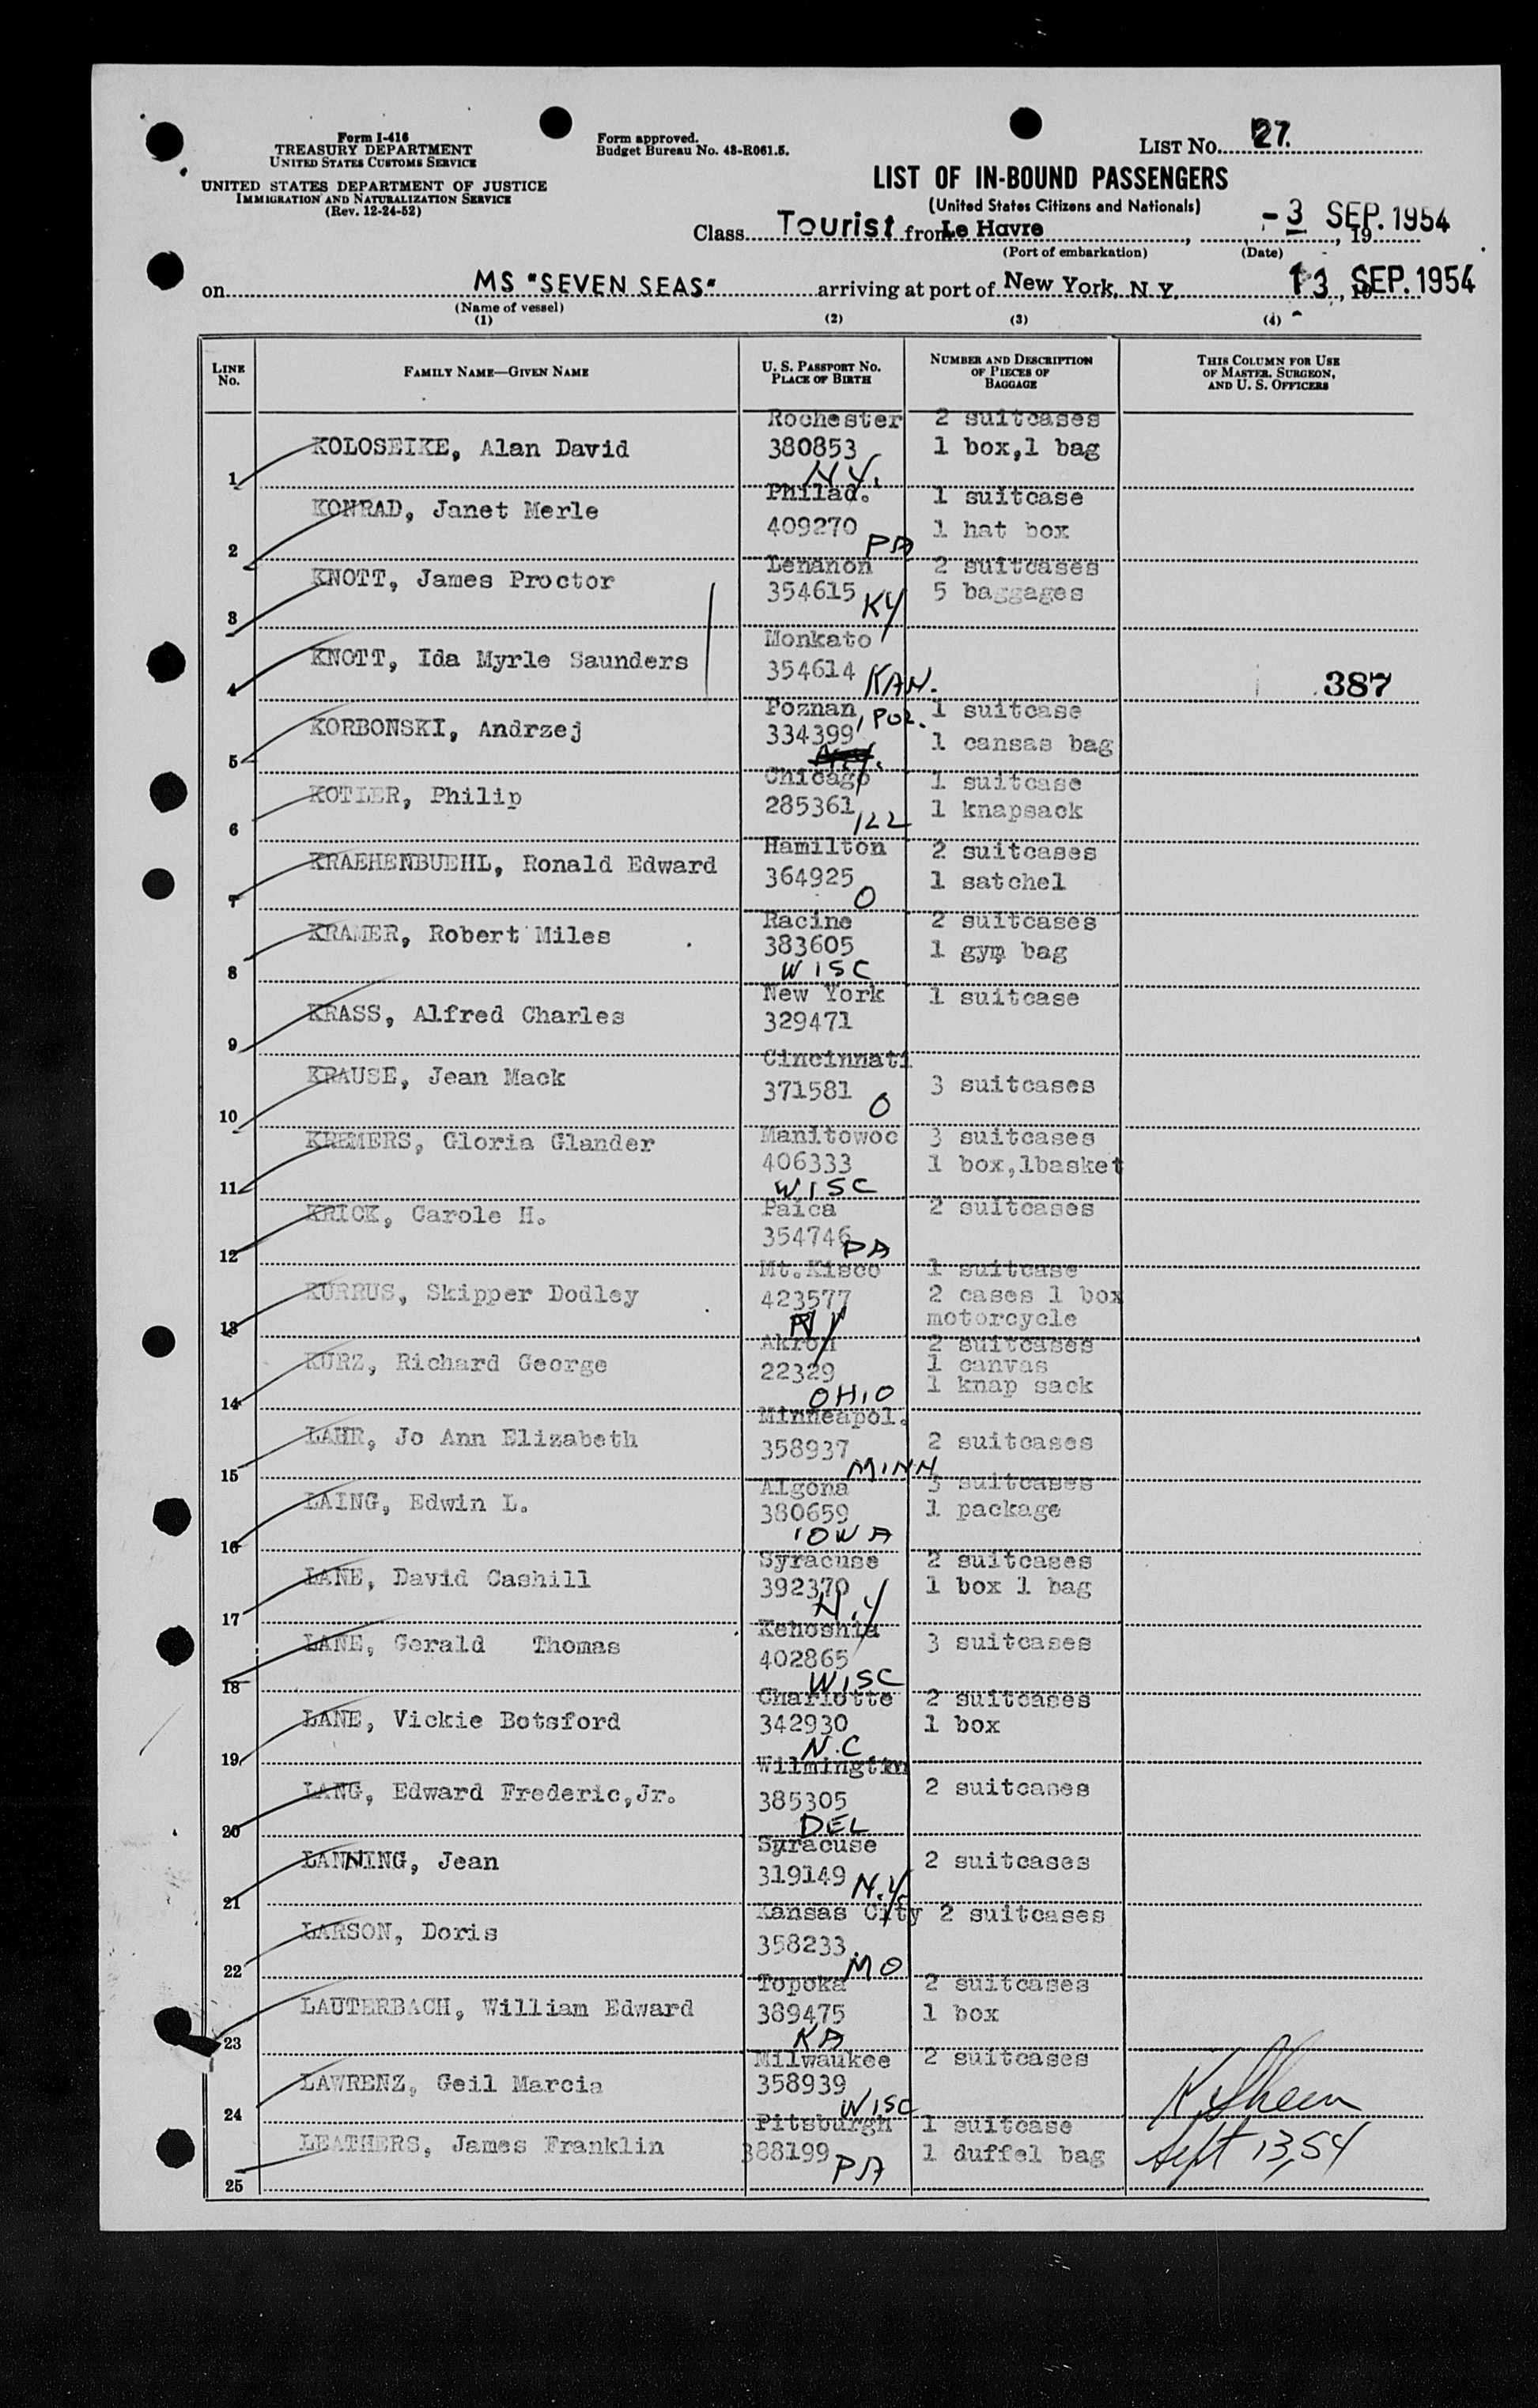 Form I-416
TREASURY DEPARTMENT
UNITED STATES CUSTOMS SERVICE
UNITED STATES DEPARTMENT OF JUSTICE
IMMIGRATION AND NATURALIZATION SERVICE
(Rev. 12-24-52)
Form approved.
Budget Bureau No. 43-R061.5.
LIST No. 27.
LIST OF IN-BOUND PASSENGERS
(United States Citizens and Nationals)
Class Tourist from Le Havre, -3 SEP. 1954, 19
(Port of embarkation) (Date)
on MS "SEVEN SEAS" arriving at port of New York, N.Y. 13 SEP. 1954, 19
(Name of vessel)
(1) (2) (3) (4)
LINE No. FAMILY NAME—GIVEN NAME U. S. PASSPORT No. PLACE OF BIRTH NUMBER AND DESCRIPTION OF PIECES OF BAGGAGE THIS COLUMN FOR USE OF MASTER, SURGEON, AND U. S. OFFICERS
Rochester 2 suitcases
KOLOSEIKE, Alan David 380853 1 box,1 bag
1 N.Y.
Philad. 1 suitcase
KONRAD, Janet Merle 409270 1 hat box
2 PA
Lenanon 2 suitcases
KNOTT, James Proctor 354615 KY 5 baggages
3
Monkato
KNOTT, Ida Myrle Saunders 354614 KAN.
4 387
Poznan, POL. 1 suitcase
KORBONSKI, Andrzej 334399 1 cansas bag
5
Chicago 1 suitcase
KOTLER, Philip 285361 ILL 1 knapsack
6
Hamilton 2 suitcases
KRAEHENBUEHL, Ronald Edward 364925 1 satchel
7 O
Racine 2 suitcases
KRAMER, Robert Miles 383605 1 gym bag
8 WISC
New York 1 suitcase
KRASS, Alfred Charles 329471
9
Cincinnati
KRAUSE, Jean Mack 371581 3 suitcases
10 O
Manitowoc 3 suitcases
KREMERS, Gloria Glander 406333 1 box,1basket
11 WISC
Paica 2 suitcases
KRICK, Carole H. 354746
12 PA
Mt.Kisco 1 suitcase
KURRUS, Skipper Dodley 423577 2 cases 1 box
13 NY motorcycle
Akron 2 suitcases
KURZ, Richard George 22329 1 canvas
14 OHIO 1 knap sack
Minneapol.
LAHR, Jo Ann Elizabeth 358937 2 suitcases
15 MINN
Algona 3 suitcases
LAING, Edwin L. 380659 1 package
16 IOWA
Syracuse 2 suitcases
LANE, David Cashill 392370 1 box 1 bag
17 N.Y
Kehoshia
LANE, Gerald Thomas 402865 3 suitcases
18 WISC
Charlotte 2 suitcases
LANE, Vickie Botsford 342930 1 box
19 N.C
Wilmington
LANG, Edward Frederic,Jr. 385305 2 suitcases
20 DEL
Syracuse
LANNING, Jean 319149 2 suitcases
21 N.Y.
Kansas City 2 suitcases
LARSON, Doris 358233
22 MO
Topoka 2 suitcases
LAUTERBACH, William Edward 389475 1 box
23 KA
Milwaukee 2 suitcases
LAWRENZ, Geil Marcia 358939
24 WISC
Pitsburgh 1 suitcase
LEATHERS, James Franklin 388199 1 duffel bag Sept 13,54
25 PA